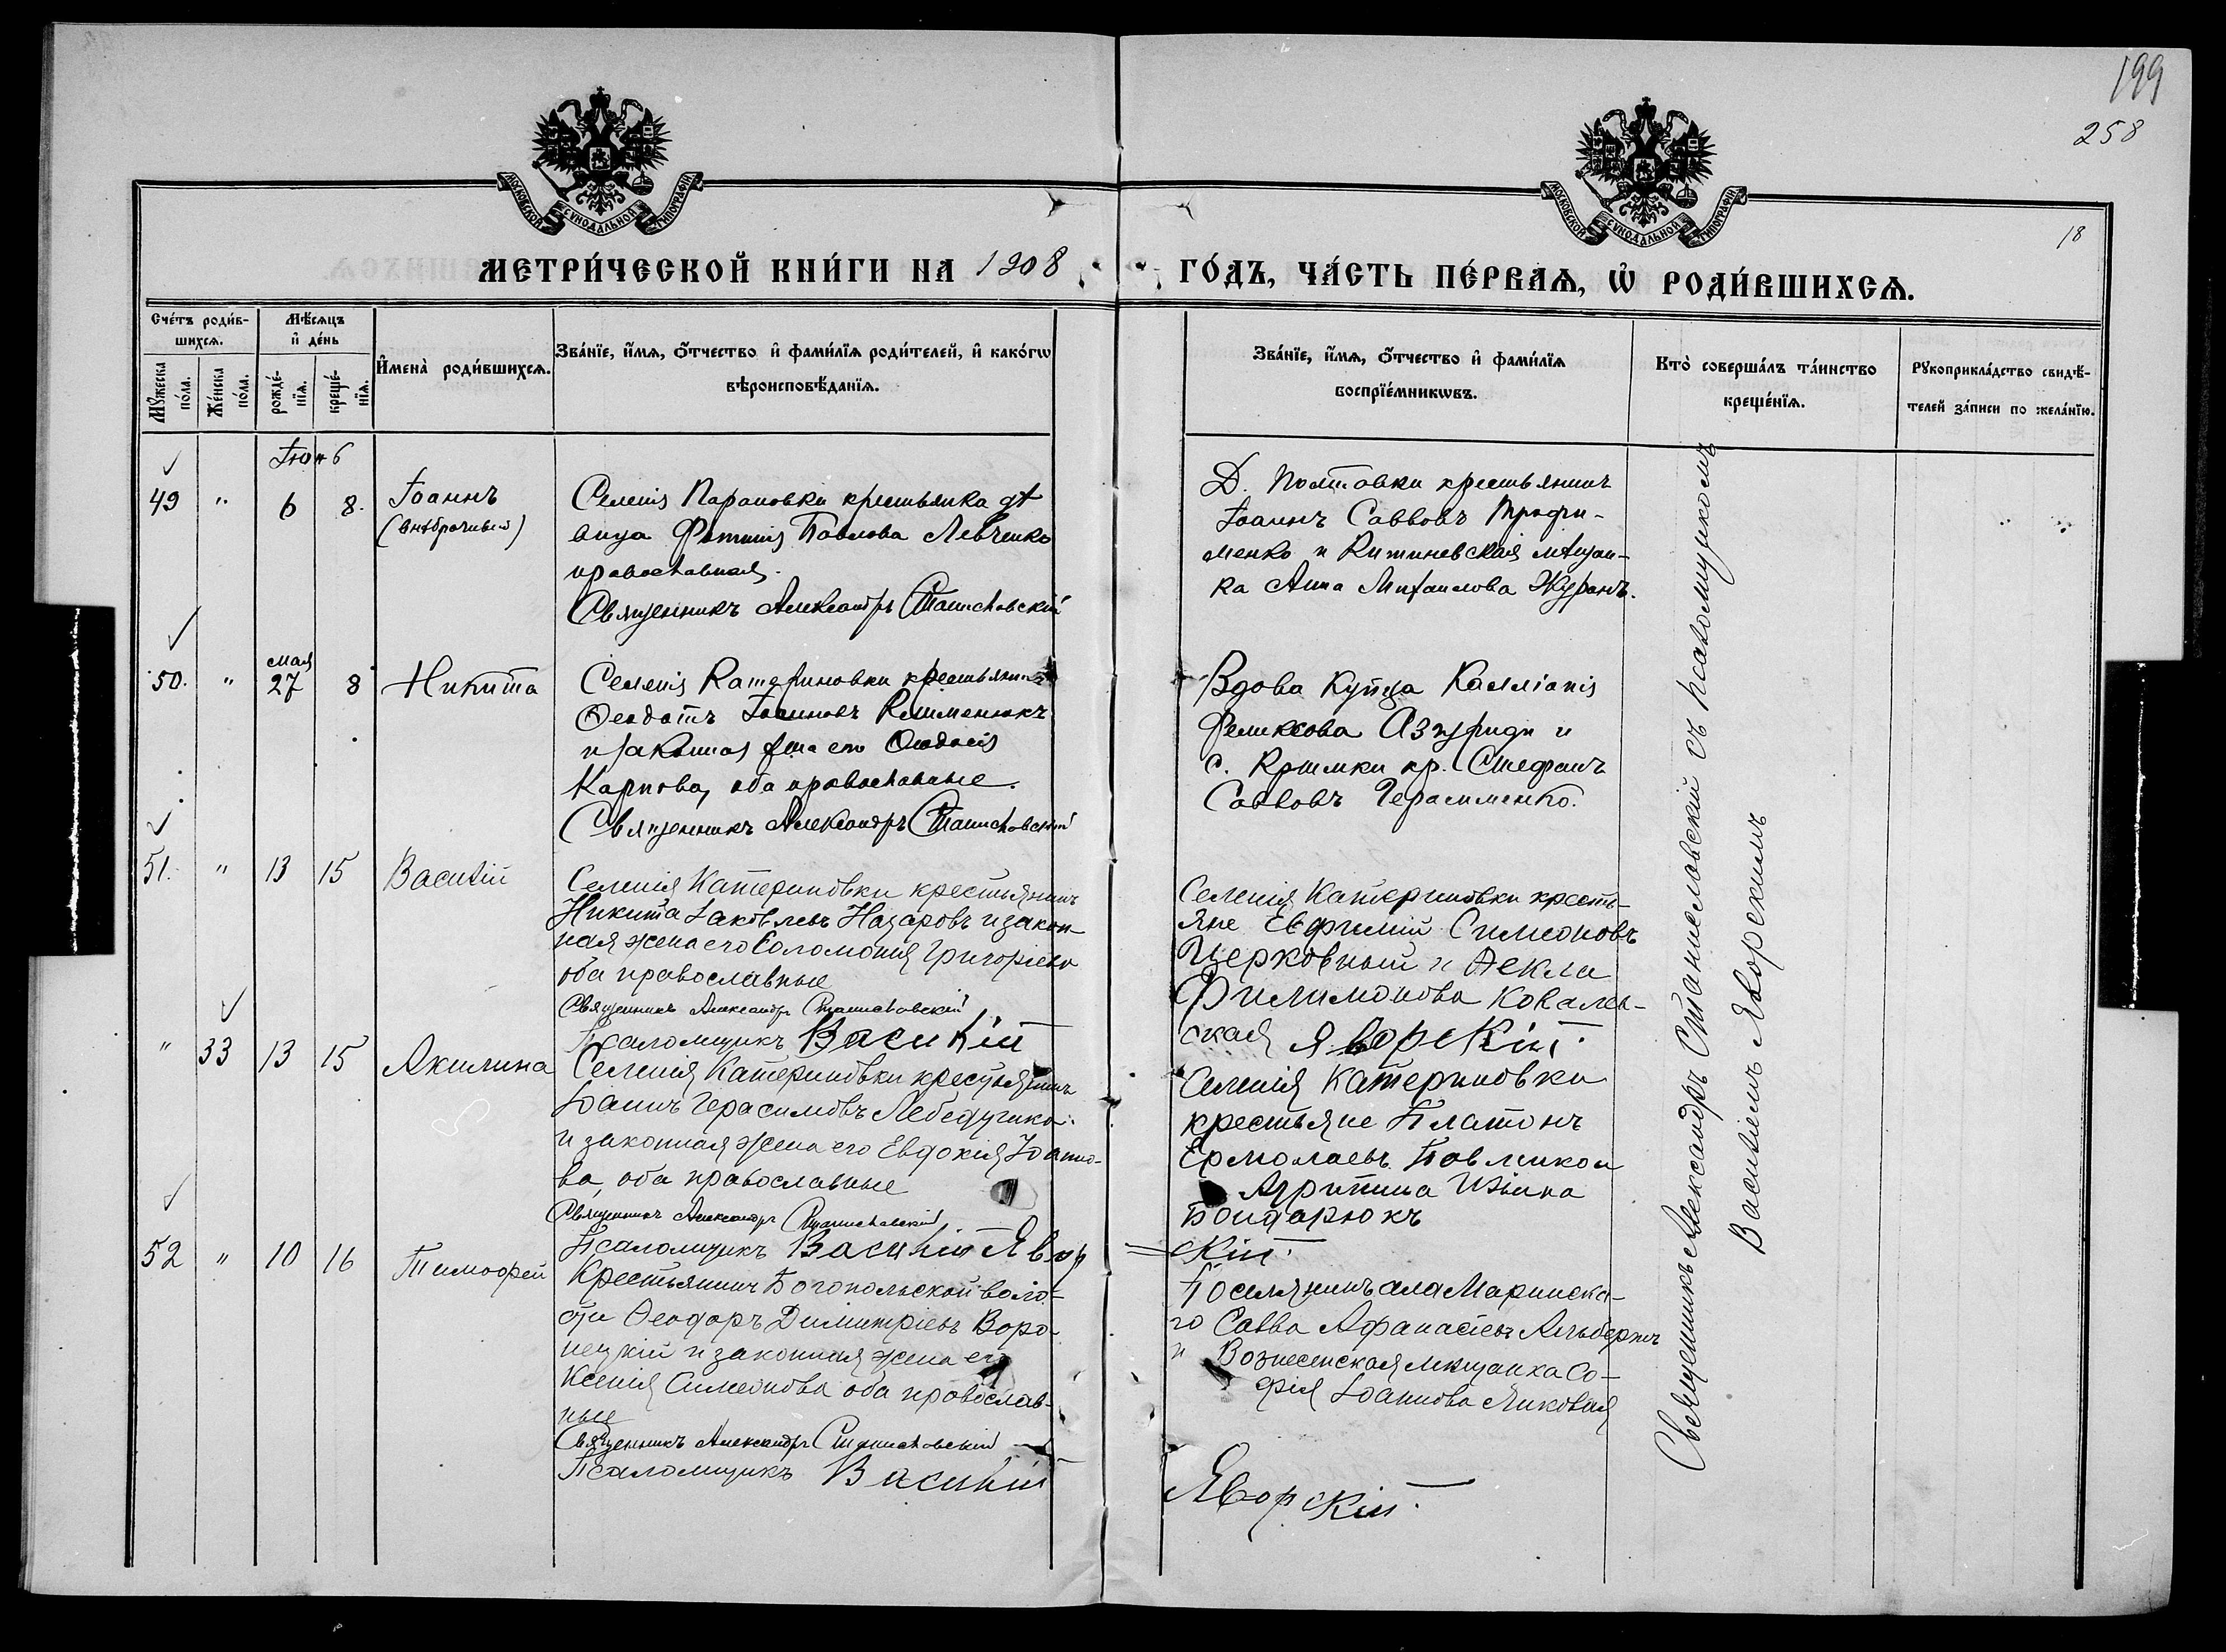 199
258
18
МОСКОВСКОЙ СѴНОДАЛЬНОЙ ТИПОГРАФІИ
МОСКОВСКОЙ СѴНОДАЛЬНОЙ ТИПОГРАФІИ
МЕТРИ́ЧЕСКОЙ КНИ́ГИ НА 1908
ГО́ДЪ, ЧА́СТЬ ПЕ́РВАѦ, Ѡ҆ РОДИ́ВШИХСѦ.
Сче́тъ роди́в-
шихсѧ.
Мѣ́сѧцъ
и҆ де́нь
Мꙋ́жеска
по́ла.
Же́нска
по́ла.
рожде́-
нїѧ.
креще́-
нїѧ.
И҆мена̀ роди́вшихсѧ.
Зва́нїе, и҆́мѧ, ѻ҆́тчество и҆ фами́лїѧ роди́телей, и҆ како́гѡ
вѣроисповѣ́данїѧ.
Зва́нїе, и҆́мѧ, ѻ҆́тчество и҆ фами́лїѧ
воспрїе́мникѡвъ.
Кто̀ соверша́лъ та́инство
креще́нїѧ.
Рꙋкоприкла́дство свидѣ́-
телей за́писи по жела́нїю.
49 " 6 8.
Іоаннъ
(внѣбрачный)
Селенія Парановки крестьянка дѣ
вица Фотинія Павлова Левченко
православная.
Священникъ Александръ Станиславскій
Д. Полтавки крестьянинъ
Іоаннъ Саввовъ Трофи-
менко и Кишиневская мѣщан-
ка Анна Михаилова Журанъ.
мая
50. " 27 8 Никита
Селенія Катериновки крестьянинъ
Ѳеодотъ Іоанновъ Клименюкъ
и законная жена его Ѳеодосія
Карпова, оба православные.
Священникъ Александръ Станиславскій
Вдова купца
Феликсова и
с. Крымки кр. Стефанъ
Саввовъ Герасименко.
51. " 13 15 Василій
Селенія Катериновки крестьянинъ
Никита Іаковлевъ Назаровъ и закон-
ная жена его Соломонія Григоріева
оба православные
Священникъ Александръ Станиславскій
Псаломщикъ Василій
Селенія Катериновки кресть-
яне Евфимій Симеоновъ
Церковный и Ѳекла
Филимонова Ковалев-
ская Яворскій.
" 33 13 15 Акилина
Селенія Катериновки крестьянинъ
Іоаннъ Герасимовъ Лебедченко
и законная жена его Евдокія Іоанно-
ва, оба православные
Священникъ Александръ Станиславскій
Псаломщикъ Василій Явор
Селенія Катериновки
крестьяне Платонъ
Ермолаевъ
Агрипина Ильина
Бондарюкъ
скій.
52 " 10 16 Тимоѳей
Крестьянинъ Богопольской воло-
сти Ѳеодоръ Димитріевъ Воро
нецкій и законная жена его
Ксенія Симеонова оба православ-
ные
Священникъ Александръ Станиславскій
Псаломщикъ Василій
Поселянинъ села Маринска-
го Савва Афанасіевъ
и Вознесенская мѣщанка Со-
фія Іоаннова
Яворскій.
Священникъ Александръ Станиславскій съ псаломщикомъ
Василіемъ Яворскимъ